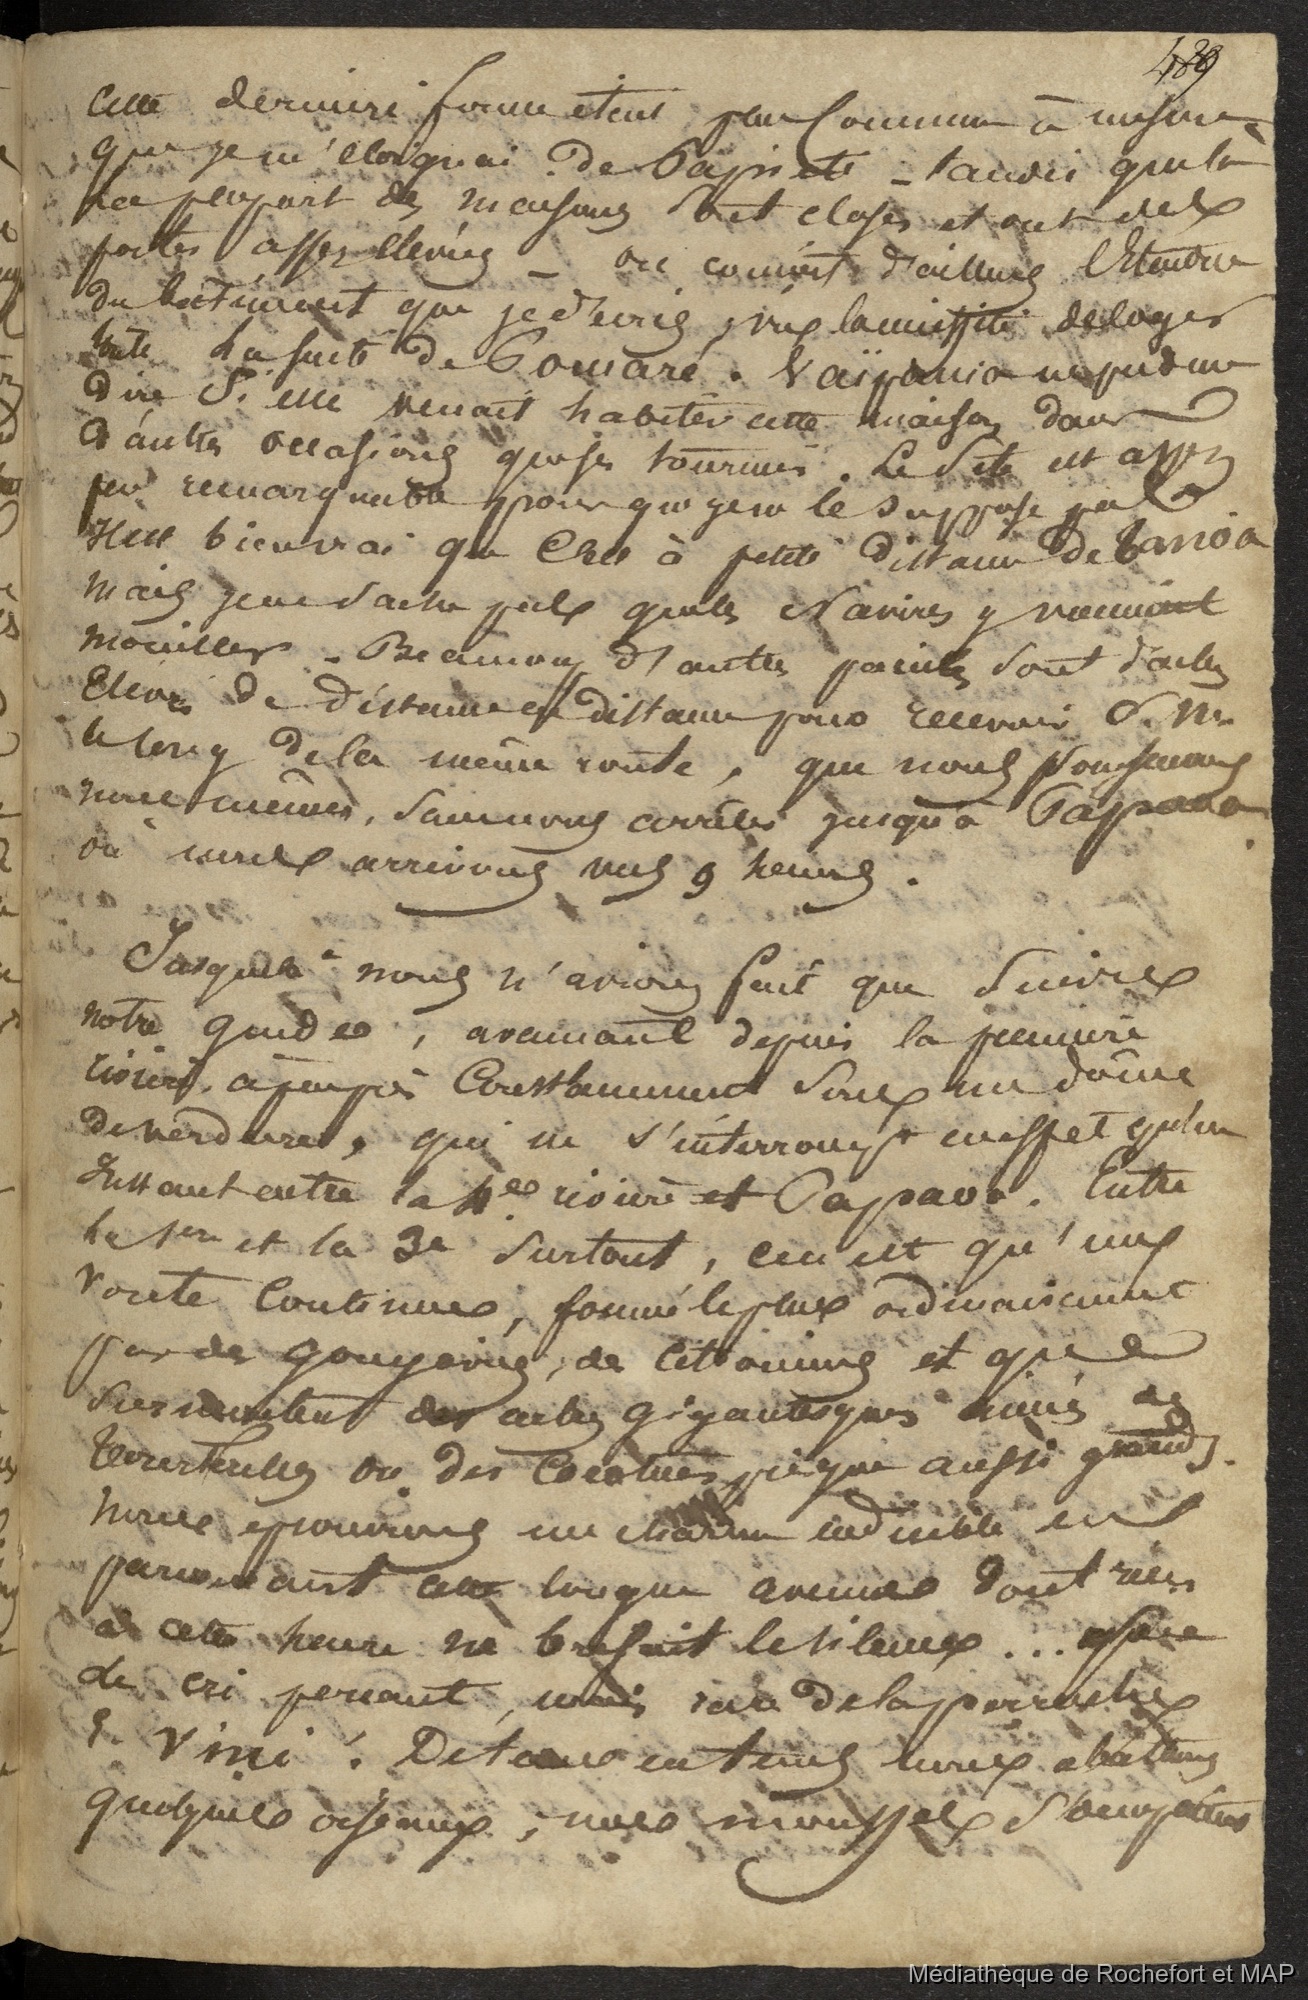 489
cette derniere forme etant peu commune à mesure
que je m'éloignai de Papiete - tandis que là
la plupart des maisons sont closes et ont des
portes assez élevées - on connait d'ailleurs l'étendue
du batiment que je décris, vu la nécessité de loger
toute la suite de Pomaré. Vaïpania ne put me
dire si elle venait habiter cette maison dans
d'autres occasions que ses tournées. Le site est assez
peu remarquable pour que je ne le suppose pas
Il est bien vrai que c'est à petite distance de
mais je ne sache pas que les navires y viennent
mouiller - Beaucoup d'autres pareils sont d'ailleurs
élevés de distance en distance pour recevoir S. M.
le long de la même route, que nous poursuivons
nous mêmes, sans nous arrêter jusqu'à Papava
où nous arrivons vers 9 heures.
Jusque là nous n'avions fait que suivre
notre guide, avançant depuis la premiere
riviere, à peu près constamment sous un dôme
de verdure, qui ne s'interrompt en effet qu'un
Instant entre la 4e riviere et Papava. Entre
la 1ere et la 3e surtout, ceci est qu'une
voute continue, formée le plus ordinairement
par des goyaviers, des citronniers et que
surmontent des arbres gigantesques
ou des cocotiers presque aussi grands.
Nous éprouvons un charme indicible en
parcourant cette longue avenue dont rien
à cette heure ne brisait le silence ...
le cri perçant, mais rare de la perruche
E. Vini. De temps en temps nous abattons
quelques oiseaux, nos mousses s'occupèrent
Médiathèque de Rochefort et MAP